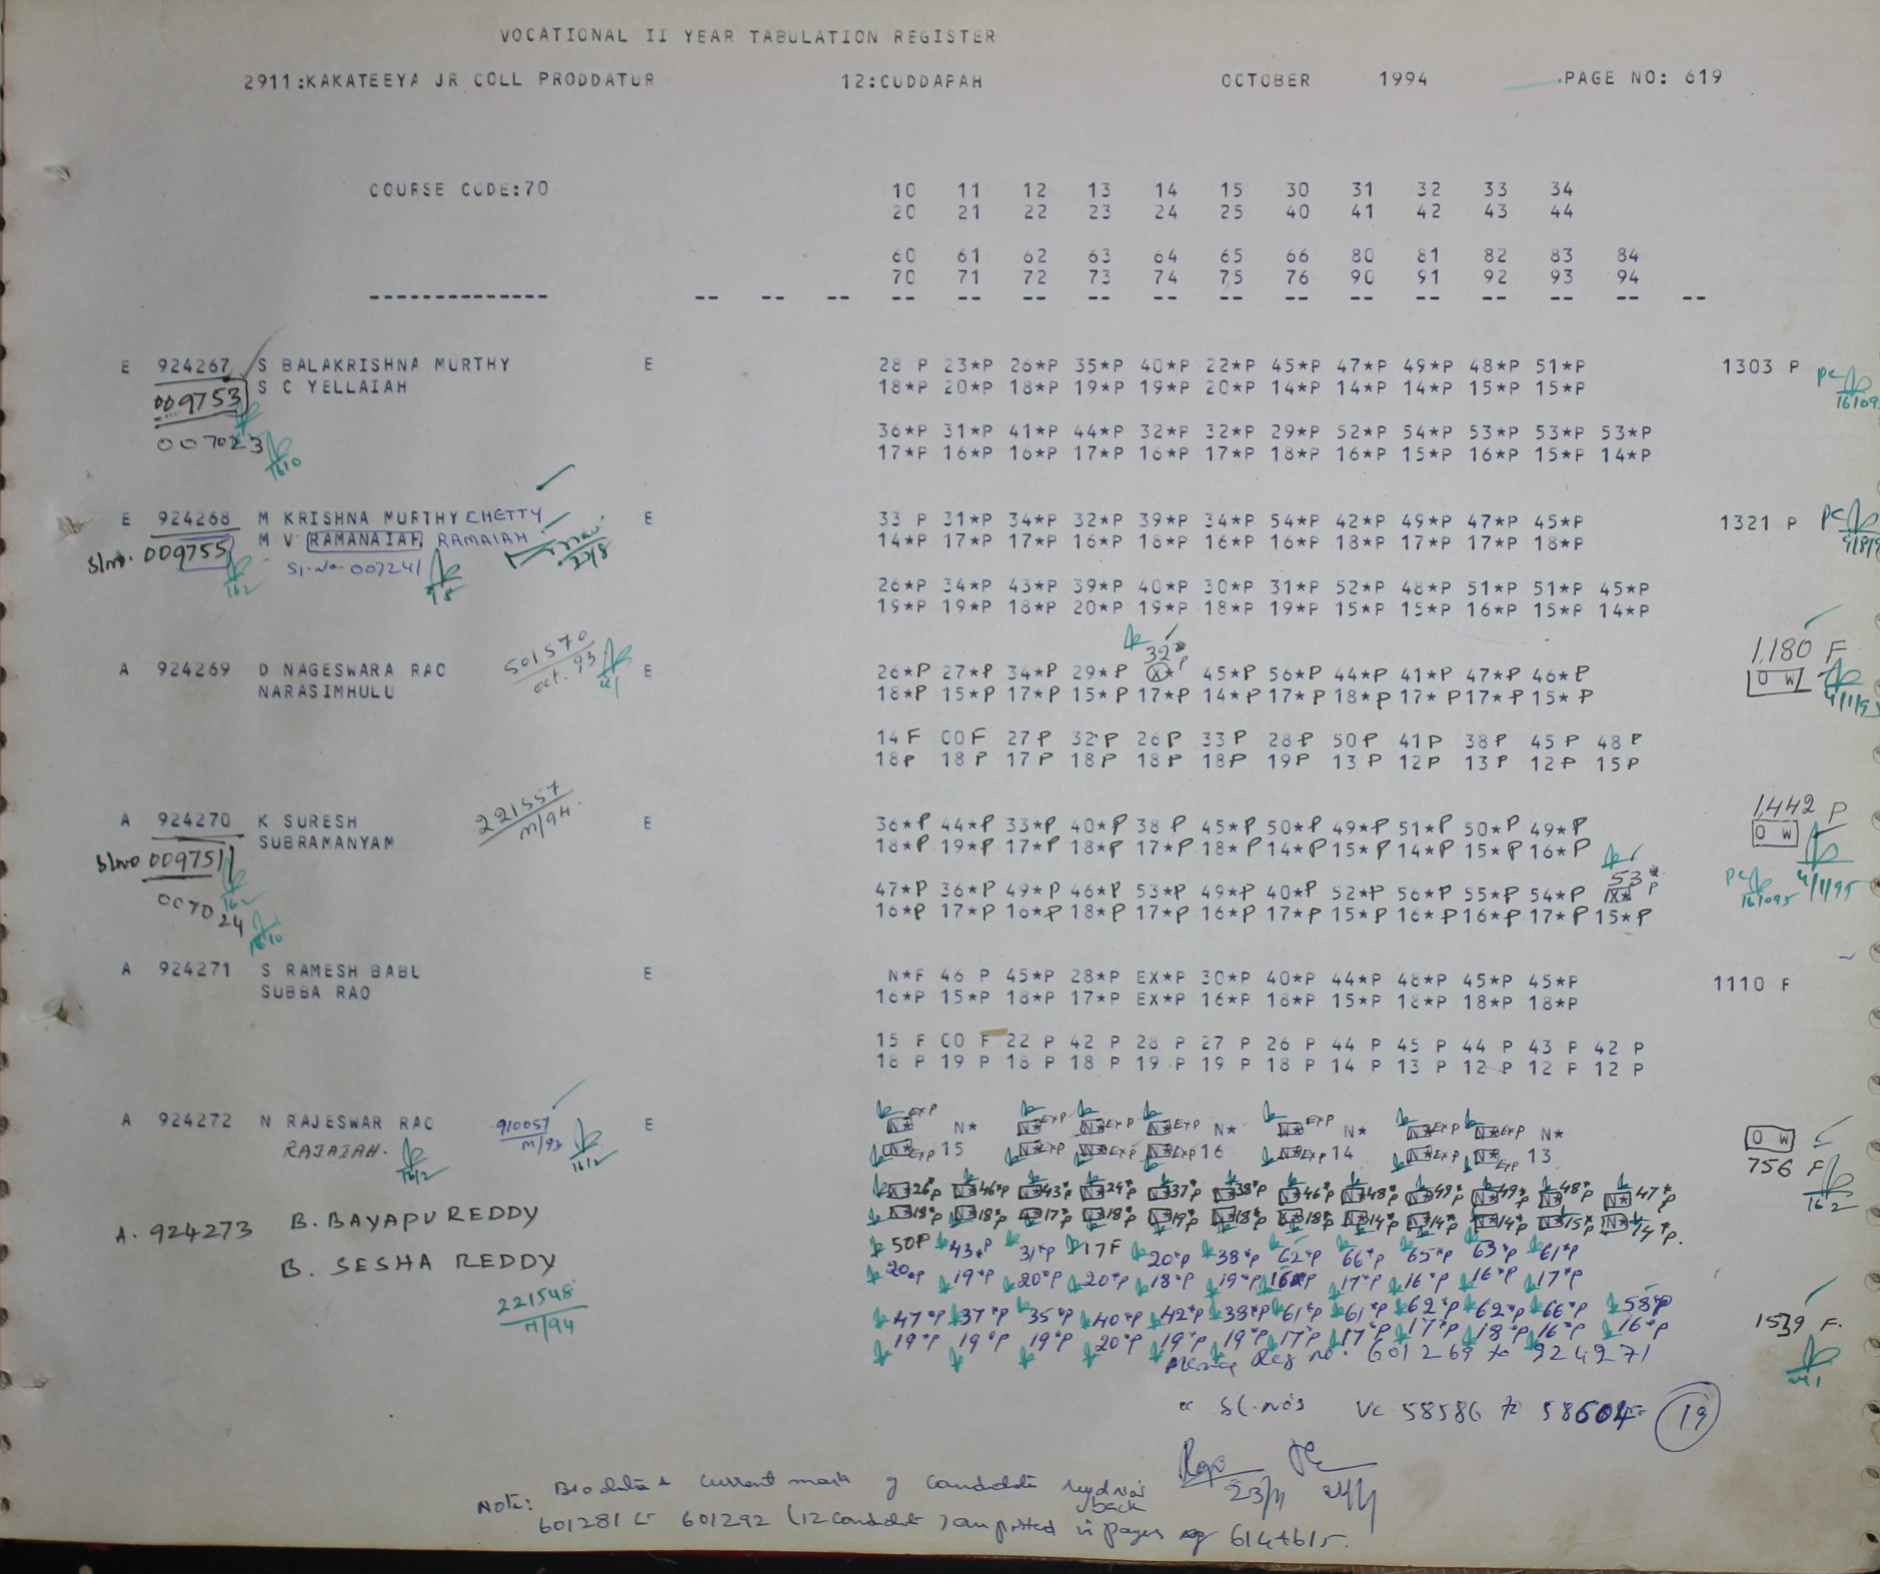 VOCATIONAL II YEAR TABULATION REGISTER
2911:KAKATEEYA JR COLL PRODDATUR 12:CUDDAPAH OCTOBER 1994 PAGE NO: 619
COURSE CODE:70 10 11 12 13 14 15 30 31 32 33 34
20 21 22 23 24 25 40 41 42 43 44
60 61 62 63 64 65 66 80 81 82 83 84
70 71 72 73 74 75 76 90 91 92 93 94
-------------- -- -- -- -- -- -- -- -- -- -- -- -- -- -- -- --
E 924267 S BALAKRISHNA MURTHY E 28 P 23*P 26*P 35*P 40*P 22*P 45*P 47*P 49*P 48*P 51*P 1303 P
009753 S C YELLAIAH 18*P 20*P 18*P 19*P 19*P 20*P 14*P 14*P 14*P 15*P 15*P
007023 36*P 31*P 41*P 44*P 32*P 32*P 29*P 52*P 54*P 53*P 53*P 53*P
17*P 16*P 16*P 17*P 16*P 17*P 18*P 16*P 15*P 16*P 15*P 14*P
E 924268 M KRISHNA MURTHY CHETTY E 33 P 31*P 34*P 32*P 39*P 34*P 54*P 42*P 49*P 47*P 45*P 1321 P
Slno. 009755 M V RAMANAIAH RAMAIAH 14*P 17*P 17*P 16*P 18*P 16*P 16*P 18*P 17*P 17*P 18*P
Sl.No-007241
26*P 34*P 43*P 39*P 40*P 30*P 31*P 52*P 48*P 51*P 51*P 45*P
19*P 19*P 18*P 20*P 19*P 18*P 19*P 15*P 15*P 16*P 15*P 14*P
501570 oct.93 32*P 1,180 F
A 924269 D NAGESWARA RAO E 26*P 27*P 34*P 29*P X* 45*P 56*P 44*P 41*P 47*P 46*P O W
NARASIMHULU 18*P 15*P 17*P 15*P 17*P 14*P 17*P 18*P 17*P 17*P 15*P
14 F 00 F 27 P 32 P 26 P 33 P 28 P 50 P 41 P 38 P 45 P 48 P
18 P 18 P 17 P 18 P 18 P 18 P 19 P 13 P 12 P 13 P 12 P 15 P
221557 M/94 1,442 P
A 924270 K SURESH E 36*P 44*P 33*P 40*P 38 P 45*P 50*P 49*P 51*P 50*P 49*P O W
SUBRAMANYAM 18*P 19*P 17*P 18*P 17*P 18*P 14*P 15*P 14*P 15*P 16*P
Slno 009751
007024 47*P 36*P 49*P 46*P 53*P 49*P 40*P 52*P 56*P 55*P 54*P X* 53*P
16*P 17*P 16*P 18*P 17*P 16*P 17*P 15*P 16*P 16*P 17*P 15*P
A 924271 S RAMESH BABU E N*F 46 P 45*P 28*P EX*P 30*P 40*P 44*P 48*P 45*P 45*P 1110 F
SUBBA RAO 16*P 15*P 18*P 17*P EX*P 16*P 18*P 15*P 18*P 18*P 18*P
15 F 00 F 22 P 42 P 28 P 27 P 26 P 44 P 45 P 44 P 43 P 42 P
18 P 19 P 18 P 18 P 19 P 19 P 18 P 14 P 13 P 12 P 12 P 12 P
A 924272 N RAJESWAR RAO 910057 M/93 E N* EXP N* N* EXP N* EXP N* EXP N* N* EXP N* N* EXP N* EXP N* O W
RAJAIAH. N* EXP 15 N* EXP N* EXP N* EXP 16 N* EXP 14 N* EXP N* EXP 13 756 F
N* 26*P N* 46*P N* 43*P N* 24*P N* 37*P N* 38*P N* 46*P N* 48*P N* 49*P N* 49*P N* 48*P N* 47*P
N* 18*P N* 18*P N* 17*P N* 18*P N* 19*P N* 18*P N* 18*P N* 14*P N* 14*P N* 14*P N* 15*P N* 14*P
A. 924273 B. BAYAPU REDDY 50P 43*P 31*P 17F 20*P 38*P 62*P 66*P 65*P 63*P 61*P
B. SESHA REDDY 20*P 19*P 20*P 20*P 18*P 19*P 16*P 17*P 16*P 16*P 17*P
221548 M/94 47*P 37*P 35*P 40*P 42*P 38*P 61*P 61*P 62*P 62*P 66*P 58*P 1539 F.
19*P 19*P 19*P 20*P 19*P 19*P 17*P 17*P 17*P 18*P 16*P 16*P
Reg no. 601269 to 924271
Sl.No's VC 58586 to 58604 19
Note: Biodata & current mark of candidate regd no's
601281 to 601292 (12 candidate) are posted in back pages of 614+615.